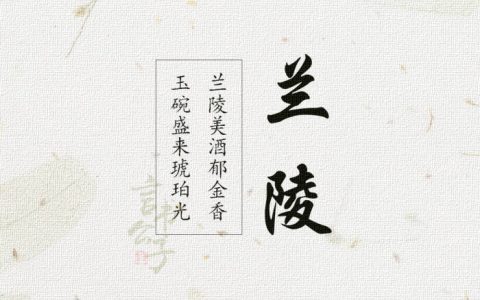 兰陵
兰陵美酒郁金香
玉碗盛来琥珀光